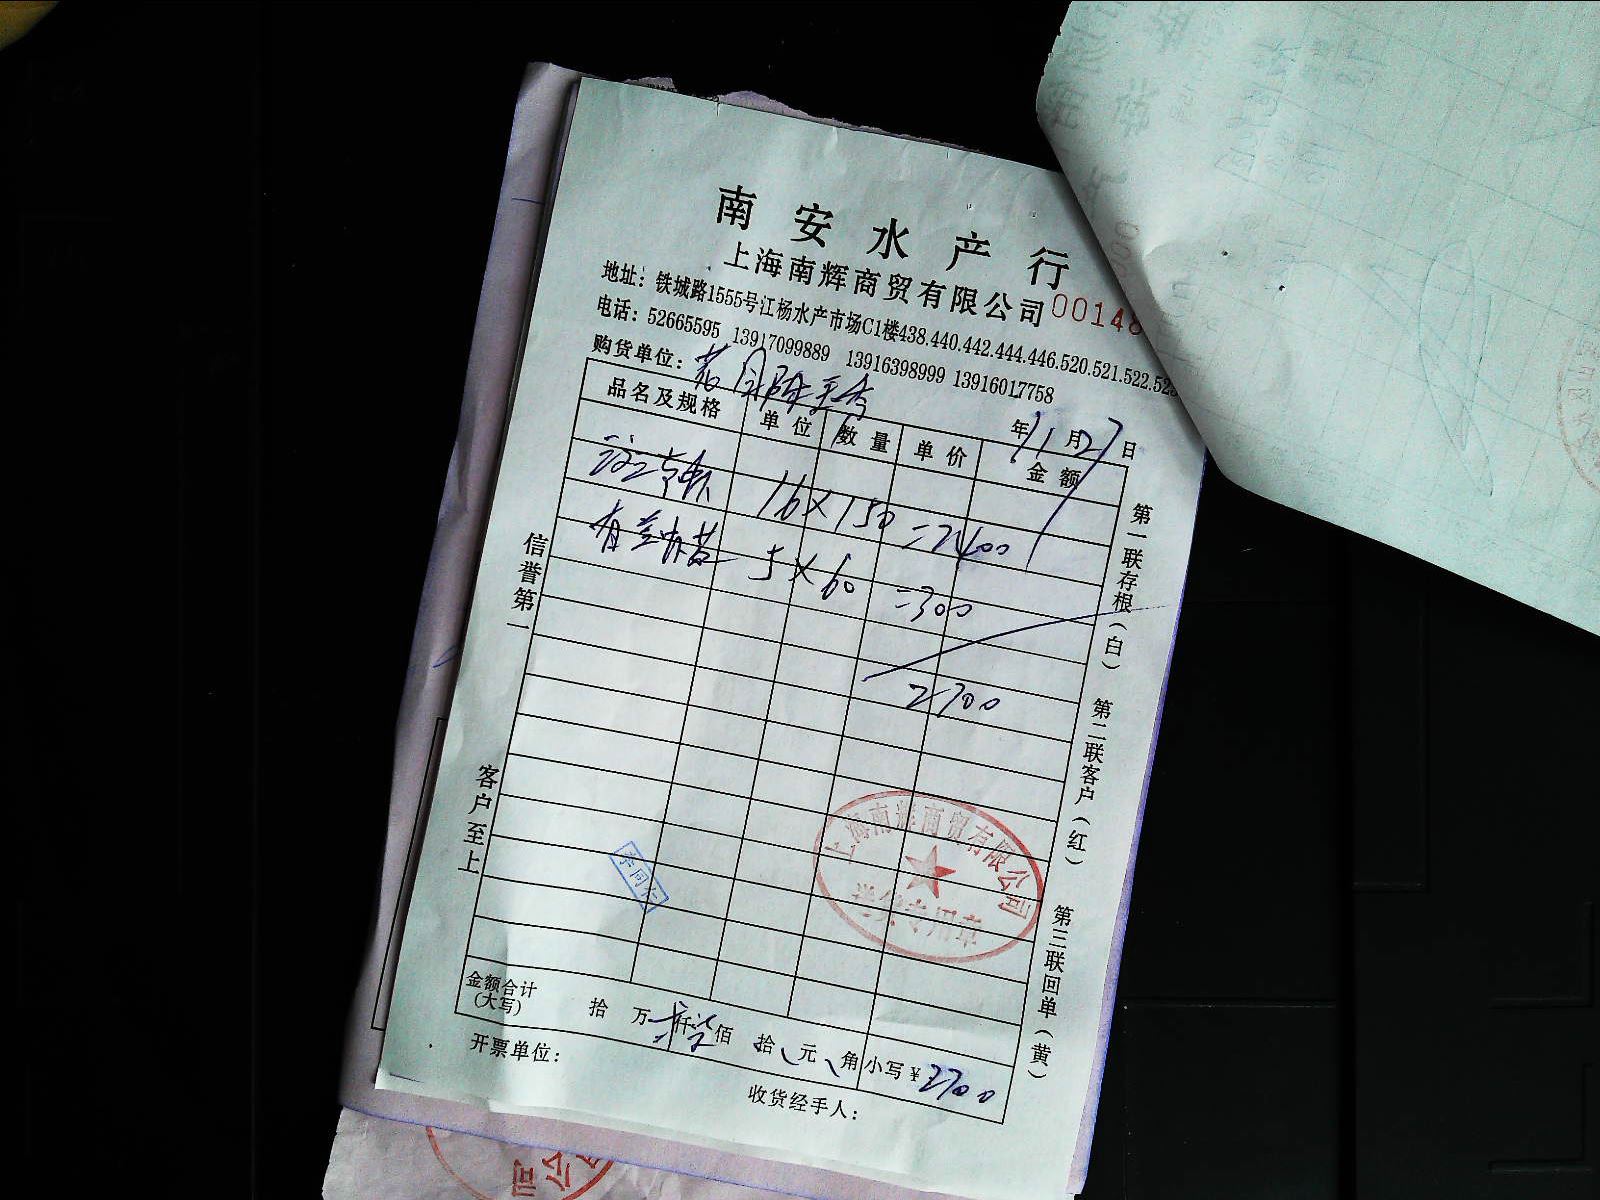 南安水产行
上海南辉商贸有限公司 00148
地址：铁城路1555号江杨水产市场C1楼438.440.442.444.446.520.521.522.523
电话：52665595 13917099889 13916398999 13916017758
购货单位：
年11月27日
品名及规格 单位 数量 单价 金额
16×150=2400
5×60=300
2700
信誉第一
客户至上
第一联存根（白）
第二联客户（红）
第三联回单（黄）
上海南辉商贸有限公司
送货专用章
金额合计（大写） 拾 万 仟 柒 佰 拾 元 角 小写￥2700
开票单位：
收货经手人：